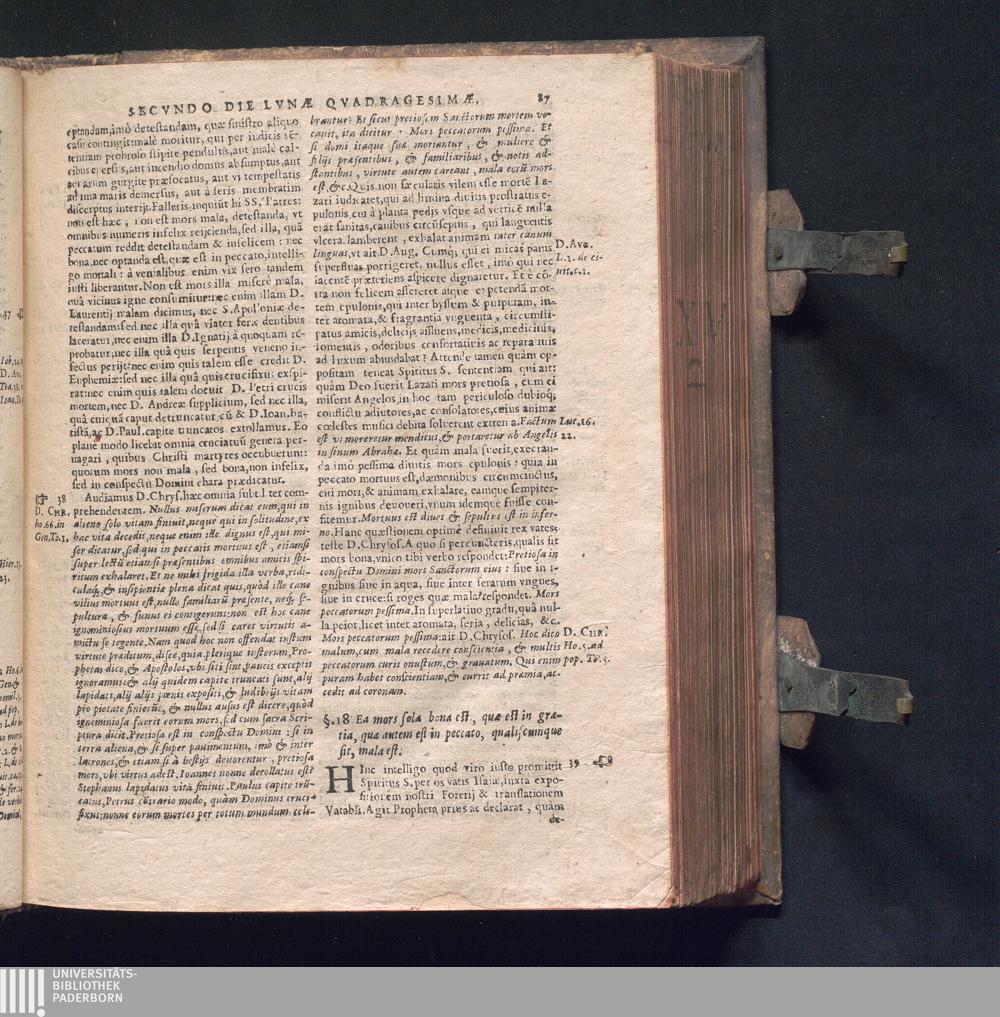 SECVNDO DIE LVNÆ QVADRAGESIMÆ. 87
eptandam, imò detestandam, quæ sinistro aliquo
casu contingit: malè moritur, qui per iudicis sē-
tentiam probroso stipite pendulus, aut malè cal-
cibus eversus, aut incendio domus absumptus, aut
aquarum gurgite præfocatus, aut vi tempestatis
ad ima maris demersus, aut à feris membratim
discerptus interijt. Falleris, inquiūt hi SS. Patres:
non est hæc, non est mors mala, detestanda, vt
omnibus numeris infelix reijcienda, sed illa, quā
peccatum reddit detestandam & infelicem: nec
bona, nec optanda est, quæ est in peccato, intelli-
go mortali: à venialibus enim vix sero tandem
iusti liberantur. Non est mors illa miserè mala,
quâ vicinus igne consumitur: nec enim illam D.
Laurentij malam dicimus, nec S. Apolloniæ de-
testandam: sed nec illa quâ viator feræ dentibus
laceratur, nec enim illa D. Ignatij à quoquam re-
probatur, nec illa quâ quis serpentis veneno in-
fectus perijt: nec enim quis talem esse credit D.
Euphemiæ: sed nec illa quâ quis crucifixus expi-
rat: nec enim quis talem docuit D. Petri crucis
mortem, nec D. Andreæ supplicium, sed nec illa,
quâ cuiquā caput detruncatur, cū & D. Ioan. ba-
tistā, ac D. Paul. capite truncatos extollamus. Eo
planè modo licebit omnia cruciatuū genera per-
uagari, quibus Christi martyres occubuerunt:
quorum mors non mala, sed bona, non infelix,
sed in conspectu Domini chara prædicatur.
38 Audiamus D. Chrys. hæc omnia subtiliter com-
D. CHR. prehendentem. Nullus miserum dicat eum, qui in
ho. 66. in alieno solo vitam finiuit, neque qui in solitudine, ex
Gen. To. 1. hac vita decedit, neque enim ille dignus est, qui mi-
ser dicatur, sed qui in peccatis mortuus est, etiamsi
super lectū etiam si præsentibus omnibus amicis spi-
ritum exhalaret. Et ne mihi frigida illa verba, ridi-
culaq́, & insipientiæ plena dicat quis, quòd ille cane
vilius mortuus est, nullo familiarū præsente, neq́, se-
pultura, & funus ei contigerunt: non est hoc cane
ignominiosius mortuum esse, sed si caret virtutis a-
mictu se tegente. Nam quod hoc non offendat iustum
virtute præditum, disce, quia plerique iustorum, Pro-
phetas dico, & Apostolos, vbi siti sint, paucis exceptis
ignoramus: & alij quidem capite truncati sunt, alij
lapidati, alij alijs pœnis expositi, & ludibrijs vitam
pro pietate finierūt, & nullus ausus est dicere, quòd
ignominiosa fuerit eorum mors, sed cum sacra Scri-
ptura dicit. Pretiosa est in conspectu Domini: si in
terra aliena, & si super pauimentum, imò & inter
latrones, & etiam si à bestijs deuorentur, pretiosa
mors, vbi virtus adest. Ioannes nonne decollatus est?
Stephanus lapidatus vitā finiuit. Paulus capite trū-
catus, Petrus cōtrario modo, quàm Dominus cruci-
fixus: nonne eorum mortes per totum mundum cele-
brantur? Et sicut pretiosam Sanctorum mortem vo-
cauit, ita dicitur. Mors peccatorum pessima. Et
si domi itaque suæ moriantur, & muliere &
filijs præsentibus, & familiaribus, & notis ad-
stantibus, virtute autem careant, mala eorū mors
est, &c. Quis non sæcularis vilem esse mortē La-
zari iudicaret, qui ad limina diuitis prostratus e-
pulonis, cui à planta pedis vsque ad verticē nulla
erat sanitas, canibus circūseptus, qui languentis
vlcera lamberent, exhalat animam inter canum
linguas, vt ait D. Aug. Cumq́; qui ei micas panis D. Aug.
superfluas porrigeret, nullus esset, imò qui nec L. 1. de ci-
iacentē præteriens aspicere dignaretur. Et è cō- uit. c. 1.
tra non felicem assereret atque expetendā mor-
tem epulonis, qui inter byssum & purpuram, in-
ter aromata, & fragrantia vnguenta, circumsti-
patus amicis, delicijs affluens, medicis, medicinis,
fomentis, odoribus confortatiuis ac reparatiuis
ad luxum abundabat? Attende tamen quàm op-
positam teneat Spiritus S. sententiam qui ait:
quàm Deo fuerit Lazari mors pretiosa, cum ei
miserit Angelos, in hoc tam periculoso dubioq́;
conflictu adiutores, ac consolatores, cuius animæ
cœlestes musici debita soluerent extrema. Factum Luc. 16.
est vt moreretur mendicus, & portaretur ab Angelis 22.
in sinum Abrahæ. Et quàm mala fuerit, execran-
da imò pessima diuitis mors epulonis: quia in
peccato mortuus est, dæmonibus circumcinctus,
cui mori, & animam exhalare, eamque sempiter-
nis ignibus deuoueri, vnum idemque fuisse con-
fitemur. Mortuus est diues & sepultus est in infer-
no. Hanc quæstionem optimè definiuit rex vates,
teste D. Chrysos. A quo si percuncteris, qualis sit
mors bona, vnico tibi verbo respondet: Pretiosa in
conspectu Domini mors Sanctorum eius: siue in i-
gnibus siue in aqua, siue inter ferarum vngues,
siue in cruce: si roges quæ mala? respondet. Mors
peccatorum pessima. In superlatiuo gradu, quâ nul-
la peior, licet inter aromata, seria, delicias, &c.
Mors peccatorum pessima: ait D. Chrysos. Hoc dico D. CHR.
malum, cum mala recedere conscientia, & multis Ho. 5. ad
peccatorum curis onustum, & grauatum. Qui enim pop. To. 5.
puram habet conscientiam, & currit ad præmia, ac-
cedit ad coronam.
§. 18 Ea mors sola bona est, quæ est in gra-
tia, quæ autem est in peccato, qualiscumque
sit, mala est.
HInc intelligo quod viro iusto promittit 39
Spiritus S. per os vatis Isaiæ, iuxta expo-
sitionem nostri Forerij & translationem
Vatabli. Agit Propheta, prius ac declarat, quàm
de-
UNIVERSITÄTS-
BIBLIOTHEK
PADERBORN